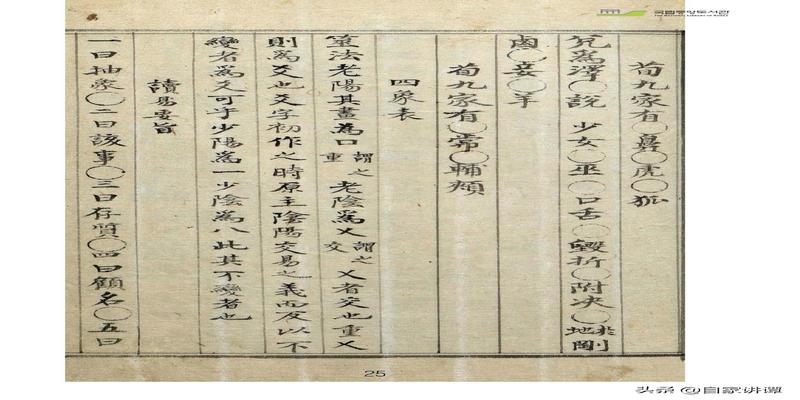 荀九家有○鼻○虎○狐
兌爲澤○說 少女○巫○口舌○毀折○附决○於地剛
鹵○妾○羊
荀九家有○常○輔頰
四象表
筮法老陽其畫爲口謂之重 老陰爲乂謂之交 乂者交也重乂
則爲爻也爻字初作之時原主陰陽交易之義而反以不
變者爲爻可乎少陽爲一少陰爲八此其不變者也
讀易要旨
一曰抽象○二曰該事○三曰存質○四曰顧名○五曰
25
국립중앙도서관
THE NATIONAL LIBRARY OF KOREA
头条 @自家讲谭